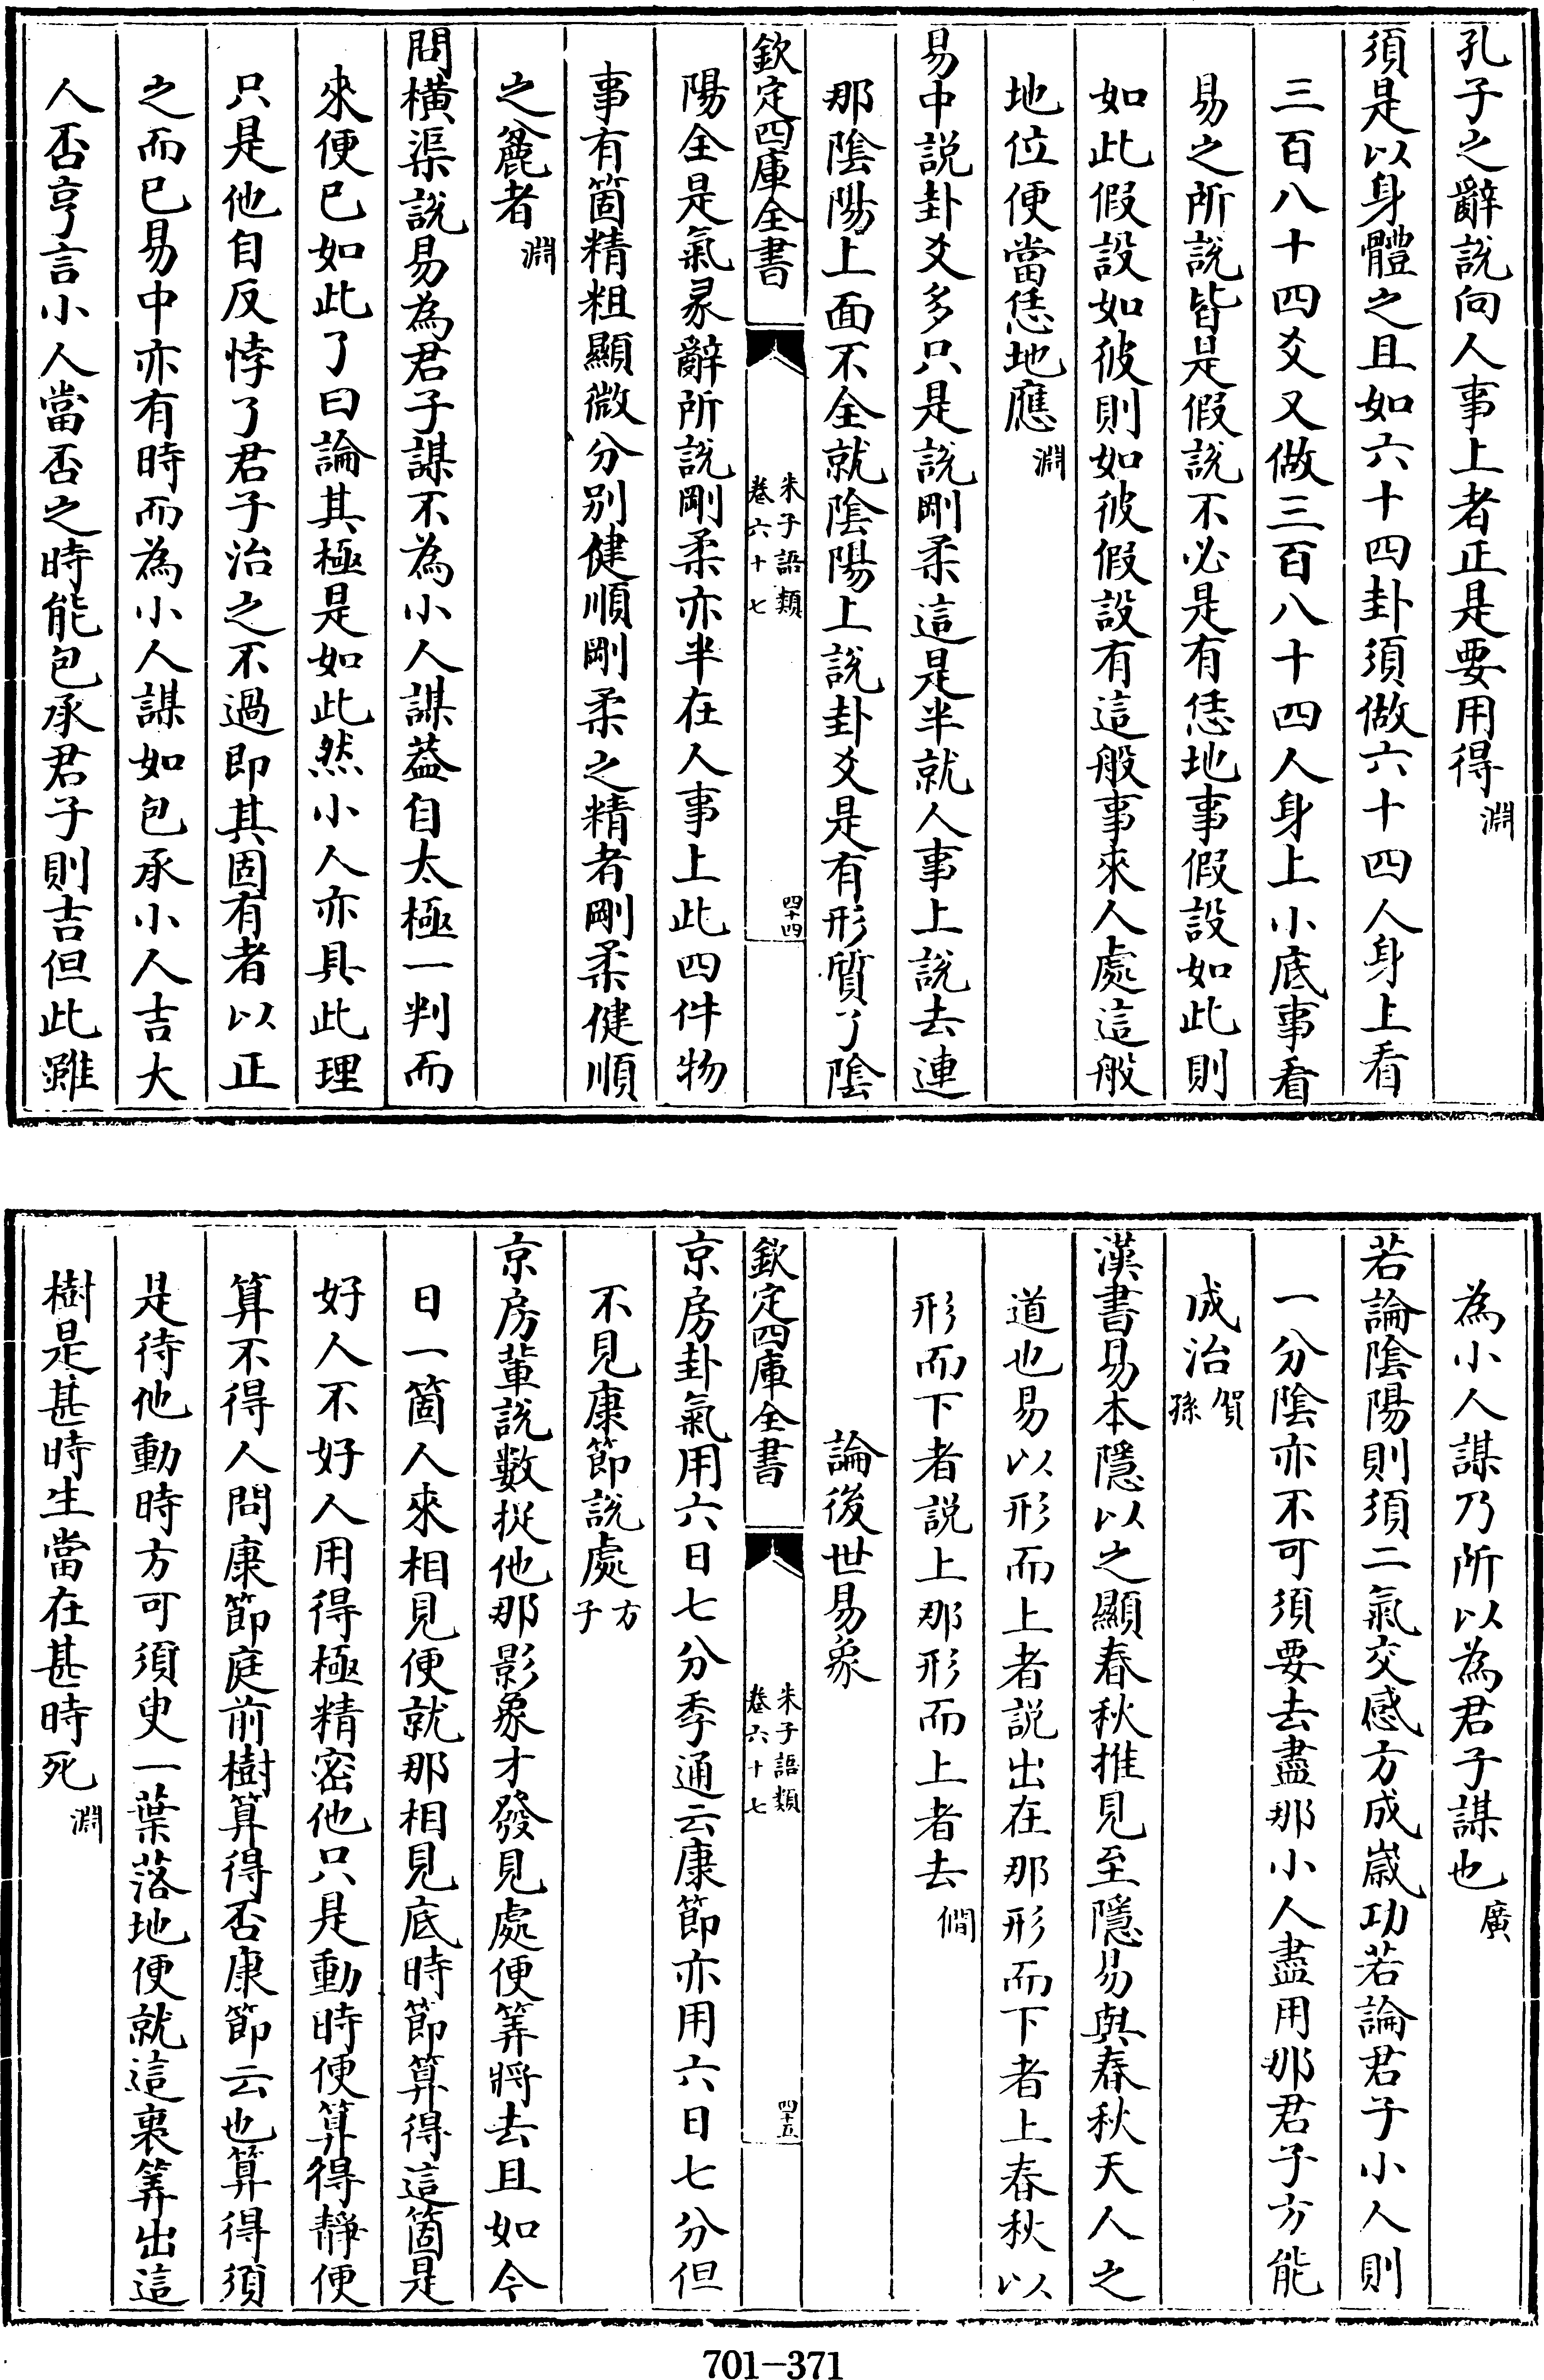 孔子之辭説向人事上者正是要用得淵
須是以身體之且如六十四卦須做六十四人身上看
三百八十四爻又做三百八十四人身上小底事看
易之所説皆是假説不必是有恁地事假設如此則
如此假設如彼則如彼假設有這般事來人處這般
地位便當恁地應淵
易中説卦爻多只是説剛柔這是半就人事上説去連
那隂陽上面不全就隂陽上説卦爻是有形質了隂
欽定四庫全書
朱子語類
卷六十七
四十四
陽全是氣彖辭所説剛柔亦半在人事上此四件物
事有箇精粗顯微分别健順剛柔之精者剛柔健順
之麄者淵
問横渠説易為君子謀不為小人謀葢自太極一判而
來便已如此了曰論其極是如此然小人亦具此理
只是他自反悖了君子治之不過即其固有者以正
之而已易中亦有時而為小人謀如包承小人吉大
人否亨言小人當否之時能包承君子則吉但此雖
為小人謀乃所以為君子謀也廣
若論隂陽則須二氣交感方成嵗功若論君子小人則
一分隂亦不可須要去盡那小人盡用那君子方能
成治賀孫
漢書易本隱以之顯春秋推見至隱易與春秋天人之
道也易以形而上者説出在那形而下者上春秋以
形而下者説上那形而上者去僩
論後世易象
欽定四庫全書
朱子語類
卷六十七
四十五
京房卦氣用六日七分季通云康節亦用六日七分但
不見康節説處方子
京房輩説數捉他那影象才發見處便筭將去且如今
日一箇人來相見便就那相見底時節算得這箇是
好人不好人用得極精密他只是動時便算得靜便
算不得人問康節庭前樹算得否康節云也算得須
是待他動時方可須臾一葉落地便就這裏筭出這
樹是甚時生當在甚時死淵
701-371